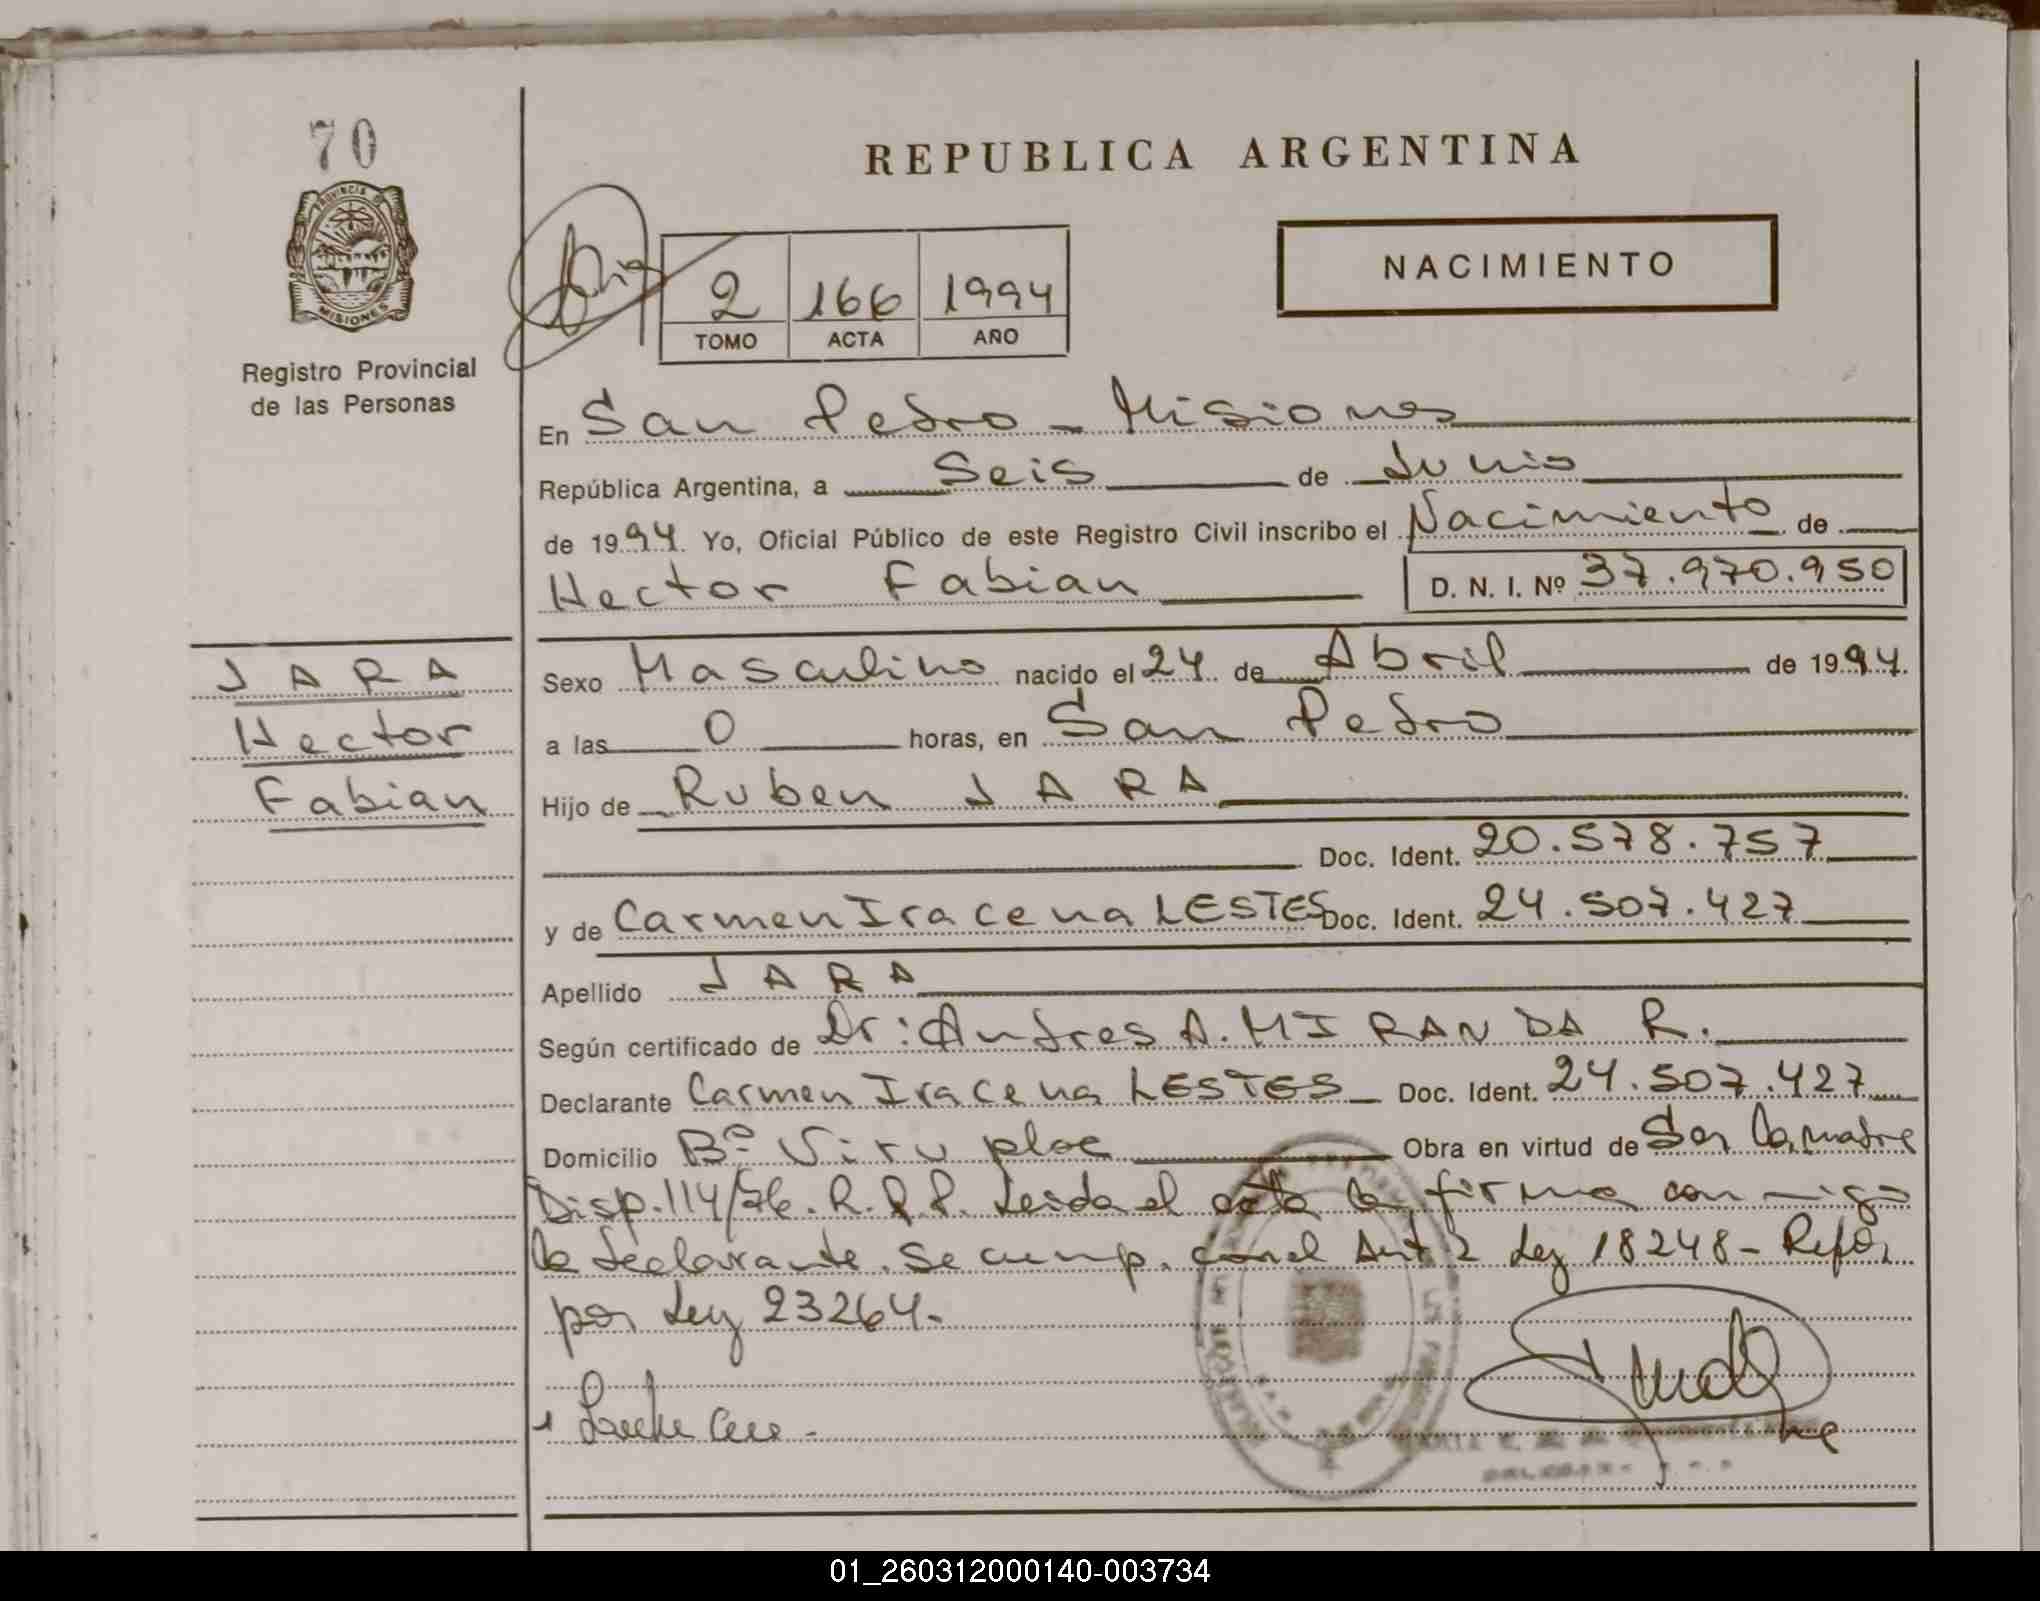 70
PROVINCIA
MISIONES
Registro Provincial
de las Personas
REPUBLICA ARGENTINA
NACIMIENTO
2 166 1994
TOMO ACTA AÑO
En San Pedro - Misiones
República Argentina, a Seis de Junio
de 1994. Yo, Oficial Público de este Registro Civil inscribo el Nacimiento de
Hector Fabian D. N. I. Nº 37.970.950
JARA
Hector
Fabian
Sexo Masculino nacido el 24 de Abril de 1994.
a las 0 horas, en San Pedro
Hijo de Ruben JARA
Doc. Ident. 20.578.757
y de Carmen Iracena LESTES Doc. Ident. 24.507.427
Apellido JARA
Según certificado de Dr: Andres A. MIRANDA R.
Declarante Carmen Iracena LESTES Doc. Ident. 24.507.427
Domicilio Bº Obra en virtud de Ser la madre
Disp. 114/76. R.P.P. Leida el acta la firma conmigo
la declarante. Se cump. con el Art 2 Ley 18248 - Refor
por Ley 23264.
01_260312000140-003734